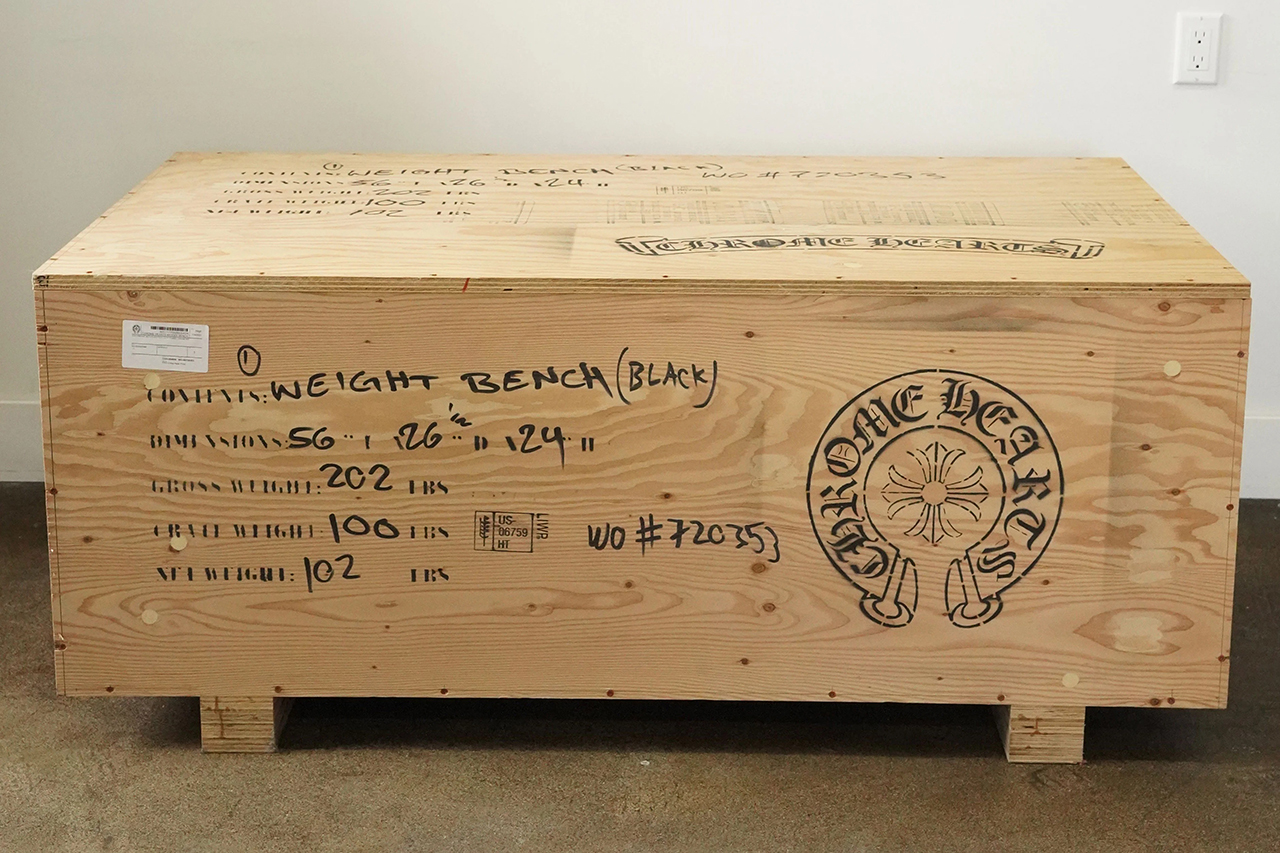 ① WEIGHT BENCH (BLACK) WO # 720353
DIMENSIONS: 56 " L X 26 1/2 " D X 24 " H
GROSS WEIGHT: 202 LBS
CRATE WEIGHT: 100 LBS
NET WEIGHT: 102 LBS
CHROME HEARTS
①
CONTENTS: WEIGHT BENCH (BLACK)
DIMENSIONS: 56 " L X 26 1/2 " D X 24 " H
GROSS WEIGHT: 202 LBS
CRATE WEIGHT: 100 LBS
US-
06759
HT
LWP
WO # 720353
NET WEIGHT: 102 LBS
CHROME HEARTS